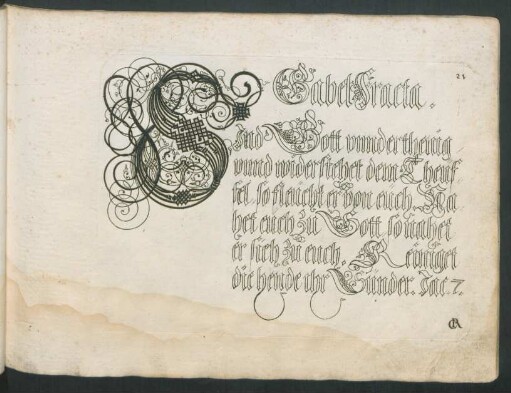 21
Gabel Fracta.
Sind Gott vnnderthenig
vnnd widerstehet dem Theuf
fel. so fleucht er von euch. Na
het euch zu Gott so nahet
er sich zu euch. Reiniget
die hende ihr Sünder. Jac. 7.